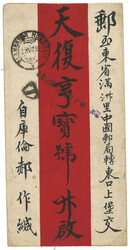 郵至東省滿洲里中國郵局轉東口上堡交
天復亨寶號升啟
自庫倫郝作緘